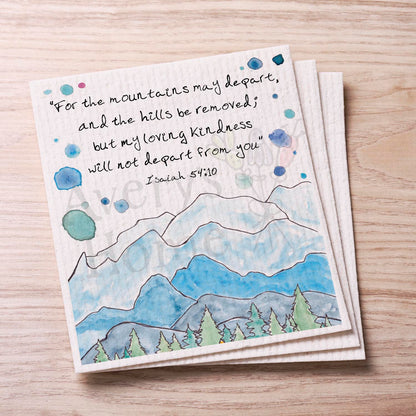 "For the mountains may depart,
and the hills be removed;
but my loving kindness
will not depart from you"
Isaiah 54:10
Avery's
Home